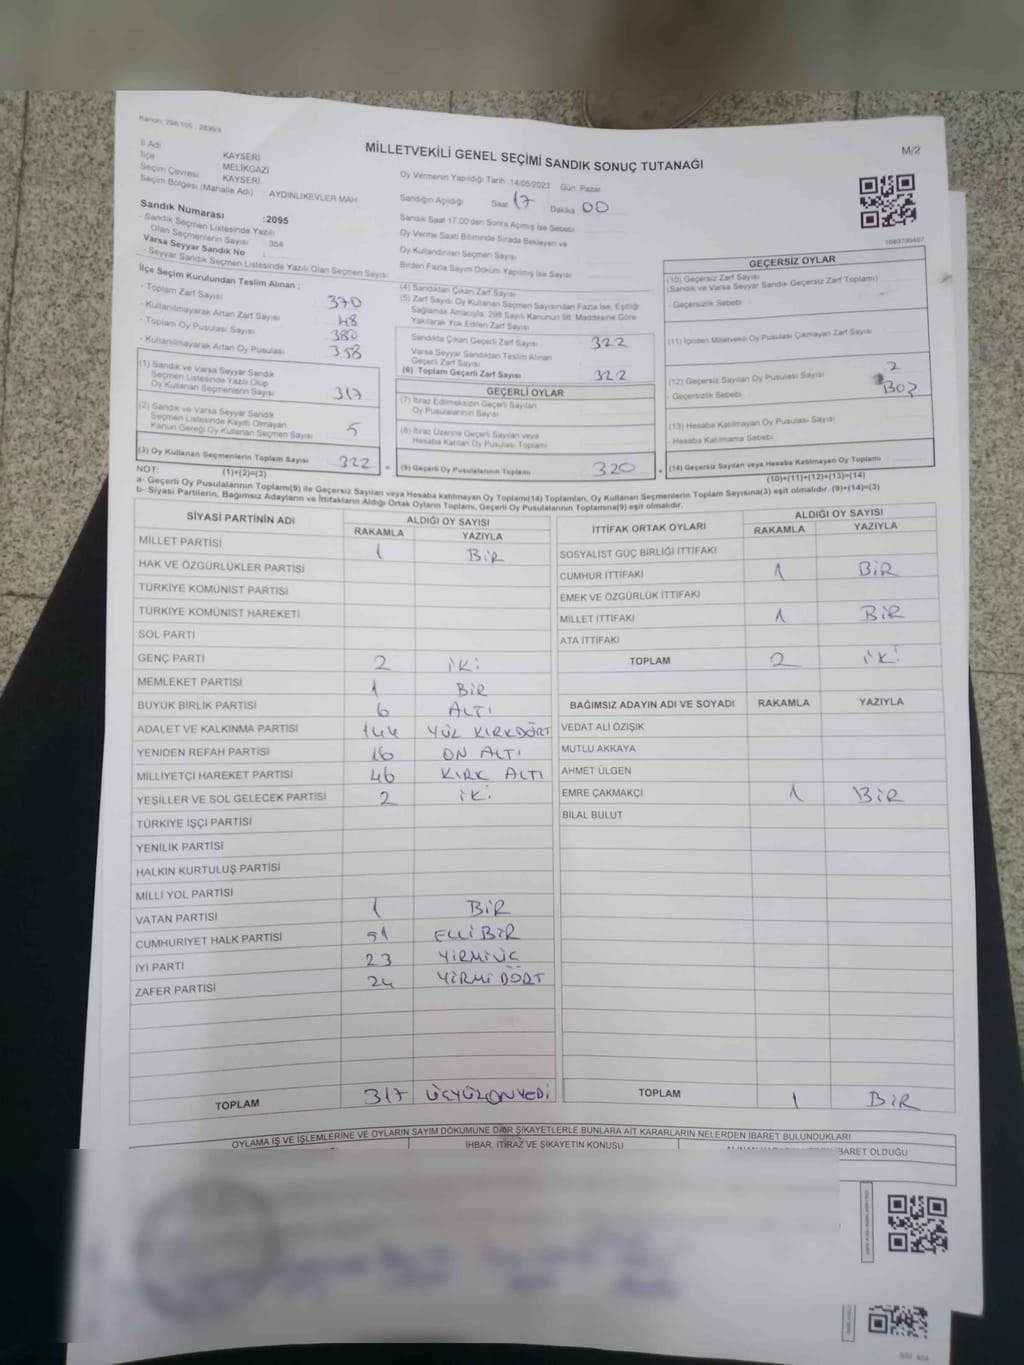 Kanun: 298/105 2839/4
MİLLETVEKİLİ GENEL SEÇİMİ SANDIK SONUÇ TUTANAĞI
M/2
İl Adı
KAYSERİ
İlçe
MELİKGAZİ
Seçim Çevresi
KAYSERİ
Seçim Bölgesi (Mahalle Adı) : AYDINLIKEVLER MAH
Sandık Numarası :2095
- Sandık Seçmen Listesinde Yazılı
Olan Seçmenlerin Sayısı : 354
Varsa Seyyar Sandık No
- Seyyar Sandık Listesinde Yazılı Olan Seçmen Sayısı
Oy Vermenin Yapıldığı Tarih :14/05/2023 Gün: Pazar
Sandığın Açıldığı Saat 17 Dakika 00
Sandık Saat 17.00'den Sonra Açılmış İse Sebebi
Oy Verme Saati Bitiminde Sırada Bekleyen ve
Oy Kullandırılan Seçmen Sayısı
Birden Fazla Sayım Döküm Yapılmış İse Sayısı
1093730467
İlçe Seçim Kurulundan Teslim Alınan ;
- Toplam Zarf Sayısı 370
- Kullanılmayarak Artan Zarf Sayısı 48
- Toplam Oy Pusulası Sayısı 380
- Kullanılmayarak Artan Oy Pusulası 358
(1) Sandık ve Varsa Seyyar Sandık
Seçmen Listesinde Yazılı Olup
Oy Kullanan Seçmenlerin Sayısı 317
(2) Sandık ve Varsa Seyyar Sandık
Seçmen Listesinde Kayıtlı Olmayan
Kanun Gereği Oy Kullanan Seçmen Sayısı 5
(3) Oy Kullanan Seçmenlerin Toplam Sayısı 322
(1)+(2)=(3)
(4) Sandıktan Çıkan Zarf Sayısı
(5) Zarf Sayısı Oy Kullanan Seçmen Sayısından Fazla İse, Eşitliği
Sağlamak Amacıyla; 298 Sayılı Kanunun 98. Maddesine Göre
Yakılarak Yok Edilen Zarf Sayısı
Sandıkta Çıkan Geçerli Zarf Sayısı 322
Varsa Seyyar Sandıktan Teslim Alınan
Geçerli Zarf Sayısı
(6) Toplam Geçerli Zarf Sayısı 322
GEÇERLİ OYLAR
(7) İtiraz Edilmeksizin Geçerli Sayılan
Oy Pusulalarının Sayısı
(8) İtiraz Üzerine Geçerli Sayılan veya
Hesaba Katılan Oy Pusulası Toplamı
= (9) Geçerli Oy Pusulalarının Toplamı 320 +
GEÇERSİZ OYLAR
(10) Geçersiz Zarf Sayısı
(Sandık ve Varsa Seyyar Sandık Geçersiz Zarf Toplamı)
- Geçersizlik Sebebi
(11) İçinden Milletvekili Oy Pusulası Çıkmayan Zarf Sayısı
(12) Geçersiz Sayılan Oy Pusulası Sayısı 2
Geçersizlik Sebebi BOŞ
(13) Hesaba Katılmayan Oy Pusulası Sayısı
- Hesaba Katılmama Sebebi
(14) Geçersiz Sayılan veya Hesaba Katılmayan Oy Toplamı
(10)+(11)+(12)+(13)=(14)
NOT:
a- Geçerli Oy Pusulalarının Toplamı(9) ile Geçersiz Sayılan veya Hesaba katılmayan Oy Toplamı(14) Toplamları, Oy Kullanan Seçmenlerin Toplam Sayısına(3) eşit olmalıdır. (9)+(14)=(3)
b- Siyasi Partilerin, Bağımsız Adayların ve İttifakların Aldığı Ortak Oyların Toplamı, Geçerli Oy Pusulalarının Toplamına(9) eşit olmalıdır.
SİYASİ PARTİNİN ADI
ALDIĞI OY SAYISI
RAKAMLA YAZIYLA
MİLLET PARTİSİ 1 BİR
HAK VE ÖZGÜRLÜKLER PARTİSİ
TÜRKİYE KOMÜNİST PARTİSİ
TÜRKİYE KOMÜNİST HAREKETİ
SOL PARTİ
GENÇ PARTİ 2 İKİ
MEMLEKET PARTİSİ 1 BİR
BÜYÜK BİRLİK PARTİSİ 6 ALTI
ADALET VE KALKINMA PARTİSİ 144 YÜZ KIRKDÖRT
YENİDEN REFAH PARTİSİ 16 ON ALTI
MİLLİYETÇİ HAREKET PARTİSİ 46 KIRK ALTI
YEŞİLLER VE SOL GELECEK PARTİSİ 2 İKİ
TÜRKİYE İŞÇİ PARTİSİ
YENİLİK PARTİSİ
HALKIN KURTULUŞ PARTİSİ
MİLLİ YOL PARTİSİ
VATAN PARTİSİ 1 BİR
CUMHURİYET HALK PARTİSİ 51 ELLİ BİR
İYİ PARTİ 23 YİRMİ ÜÇ
ZAFER PARTİSİ 24 YİRMİ DÖRT
TOPLAM 317 ÜÇYÜZONYEDİ
İTTİFAK ORTAK OYLARI
ALDIĞI OY SAYISI
RAKAMLA YAZIYLA
SOSYALİST GÜÇ BİRLİĞİ İTTİFAKI
CUMHUR İTTİFAKI 1 BİR
EMEK VE ÖZGÜRLÜK İTTİFAKI
MİLLET İTTİFAKI 1 BİR
ATA İTTİFAKI
TOPLAM 2 İKİ
BAĞIMSIZ ADAYIN ADI VE SOYADI RAKAMLA YAZIYLA
VEDAT ALİ ÖZIŞIK
MUTLU AKKAYA
AHMET ÜLGEN
EMRE ÇAKMAKÇİ 1 BİR
BİLAL BULUT
TOPLAM 1 BİR
OYLAMA İŞ VE İŞLEMLERİNE VE OYLARIN SAYIM DÖKÜMÜNE DAİR ŞİKAYETLERLE BUNLARA AİT KARARLARIN NELERDEN İBARET BULUNDUKLARI
İHBAR, İTİRAZ VE ŞİKAYETİN KONUSU
İBARET OLDUĞU